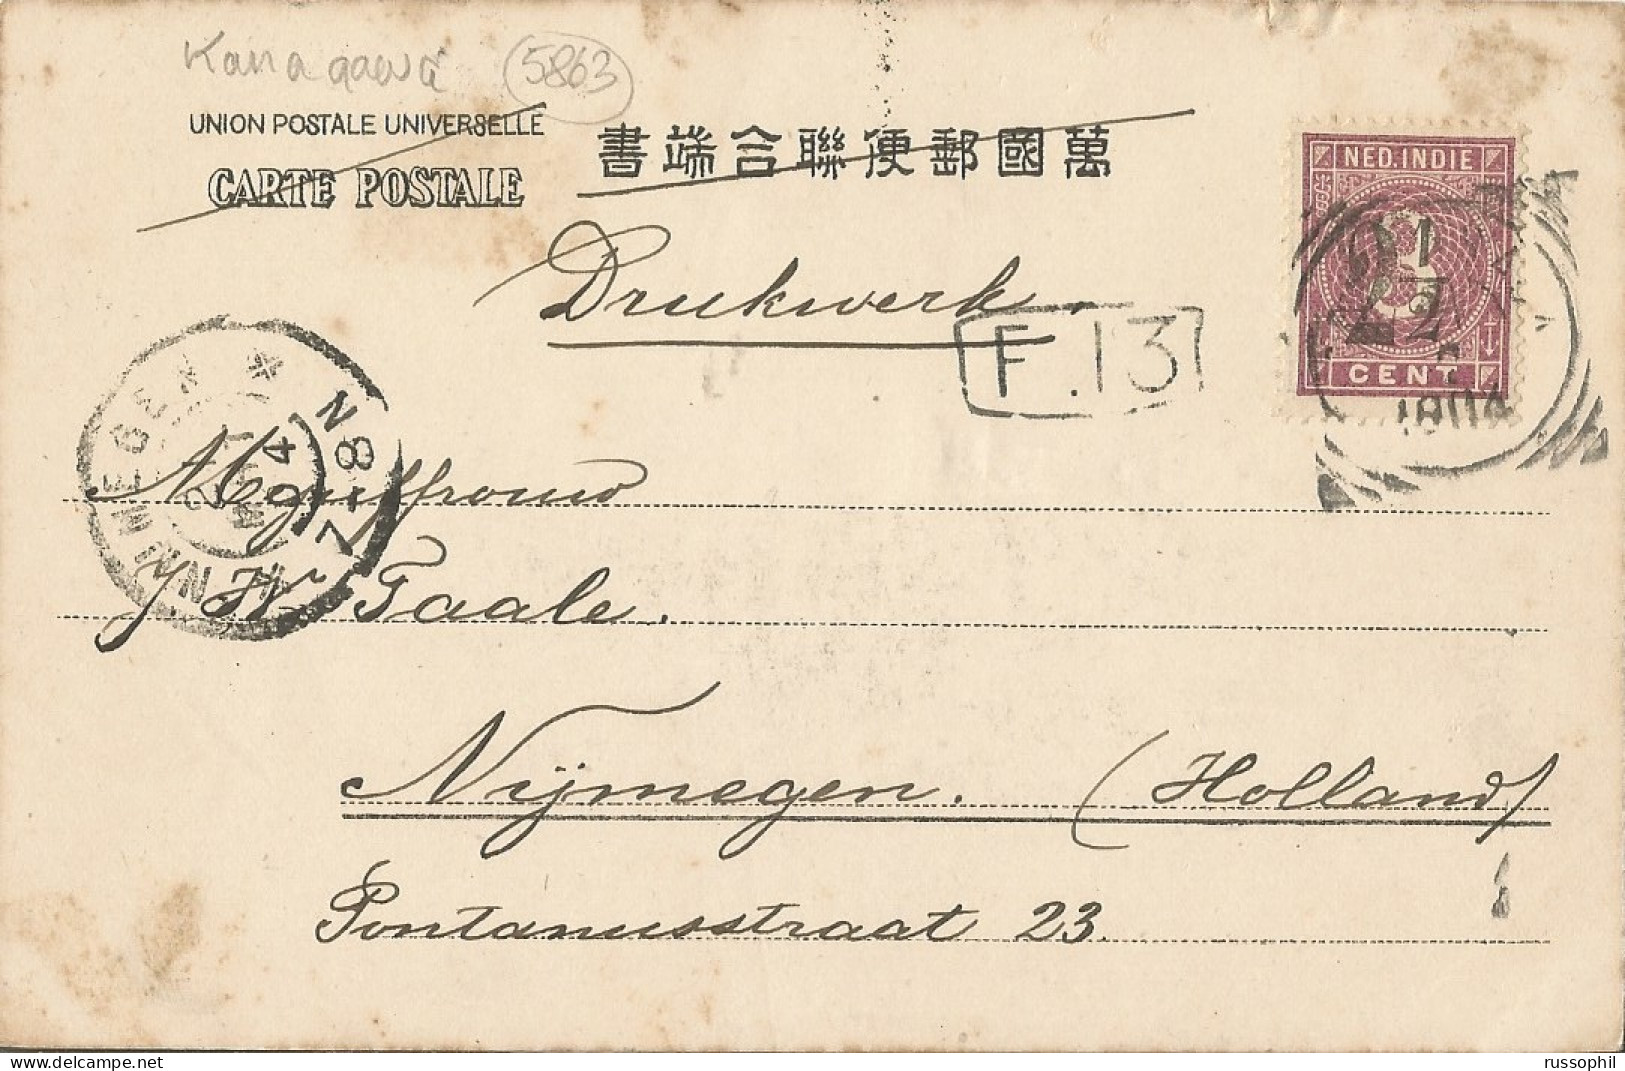 Kanagawa 5863
UNION POSTALE UNIVERSELLE
CARTE POSTALE
書端合聯便郵國萬
NED. INDIE
2 1/2
CENT
1904
Drukwerk.
F.13
NIJMEGEN
04
7-8 N
Mejuffrouw
J W Taale.
Nijmegen. (Holland)
Pontanusstraat 23.
russophil
www.delcampe.net